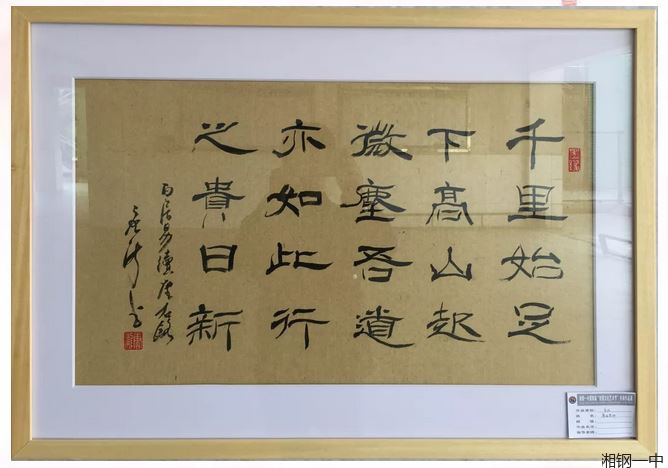 千里始足
下高山起
微塵吾道
亦如此行
之貴日新
白居易續座右銘
湘钢一中